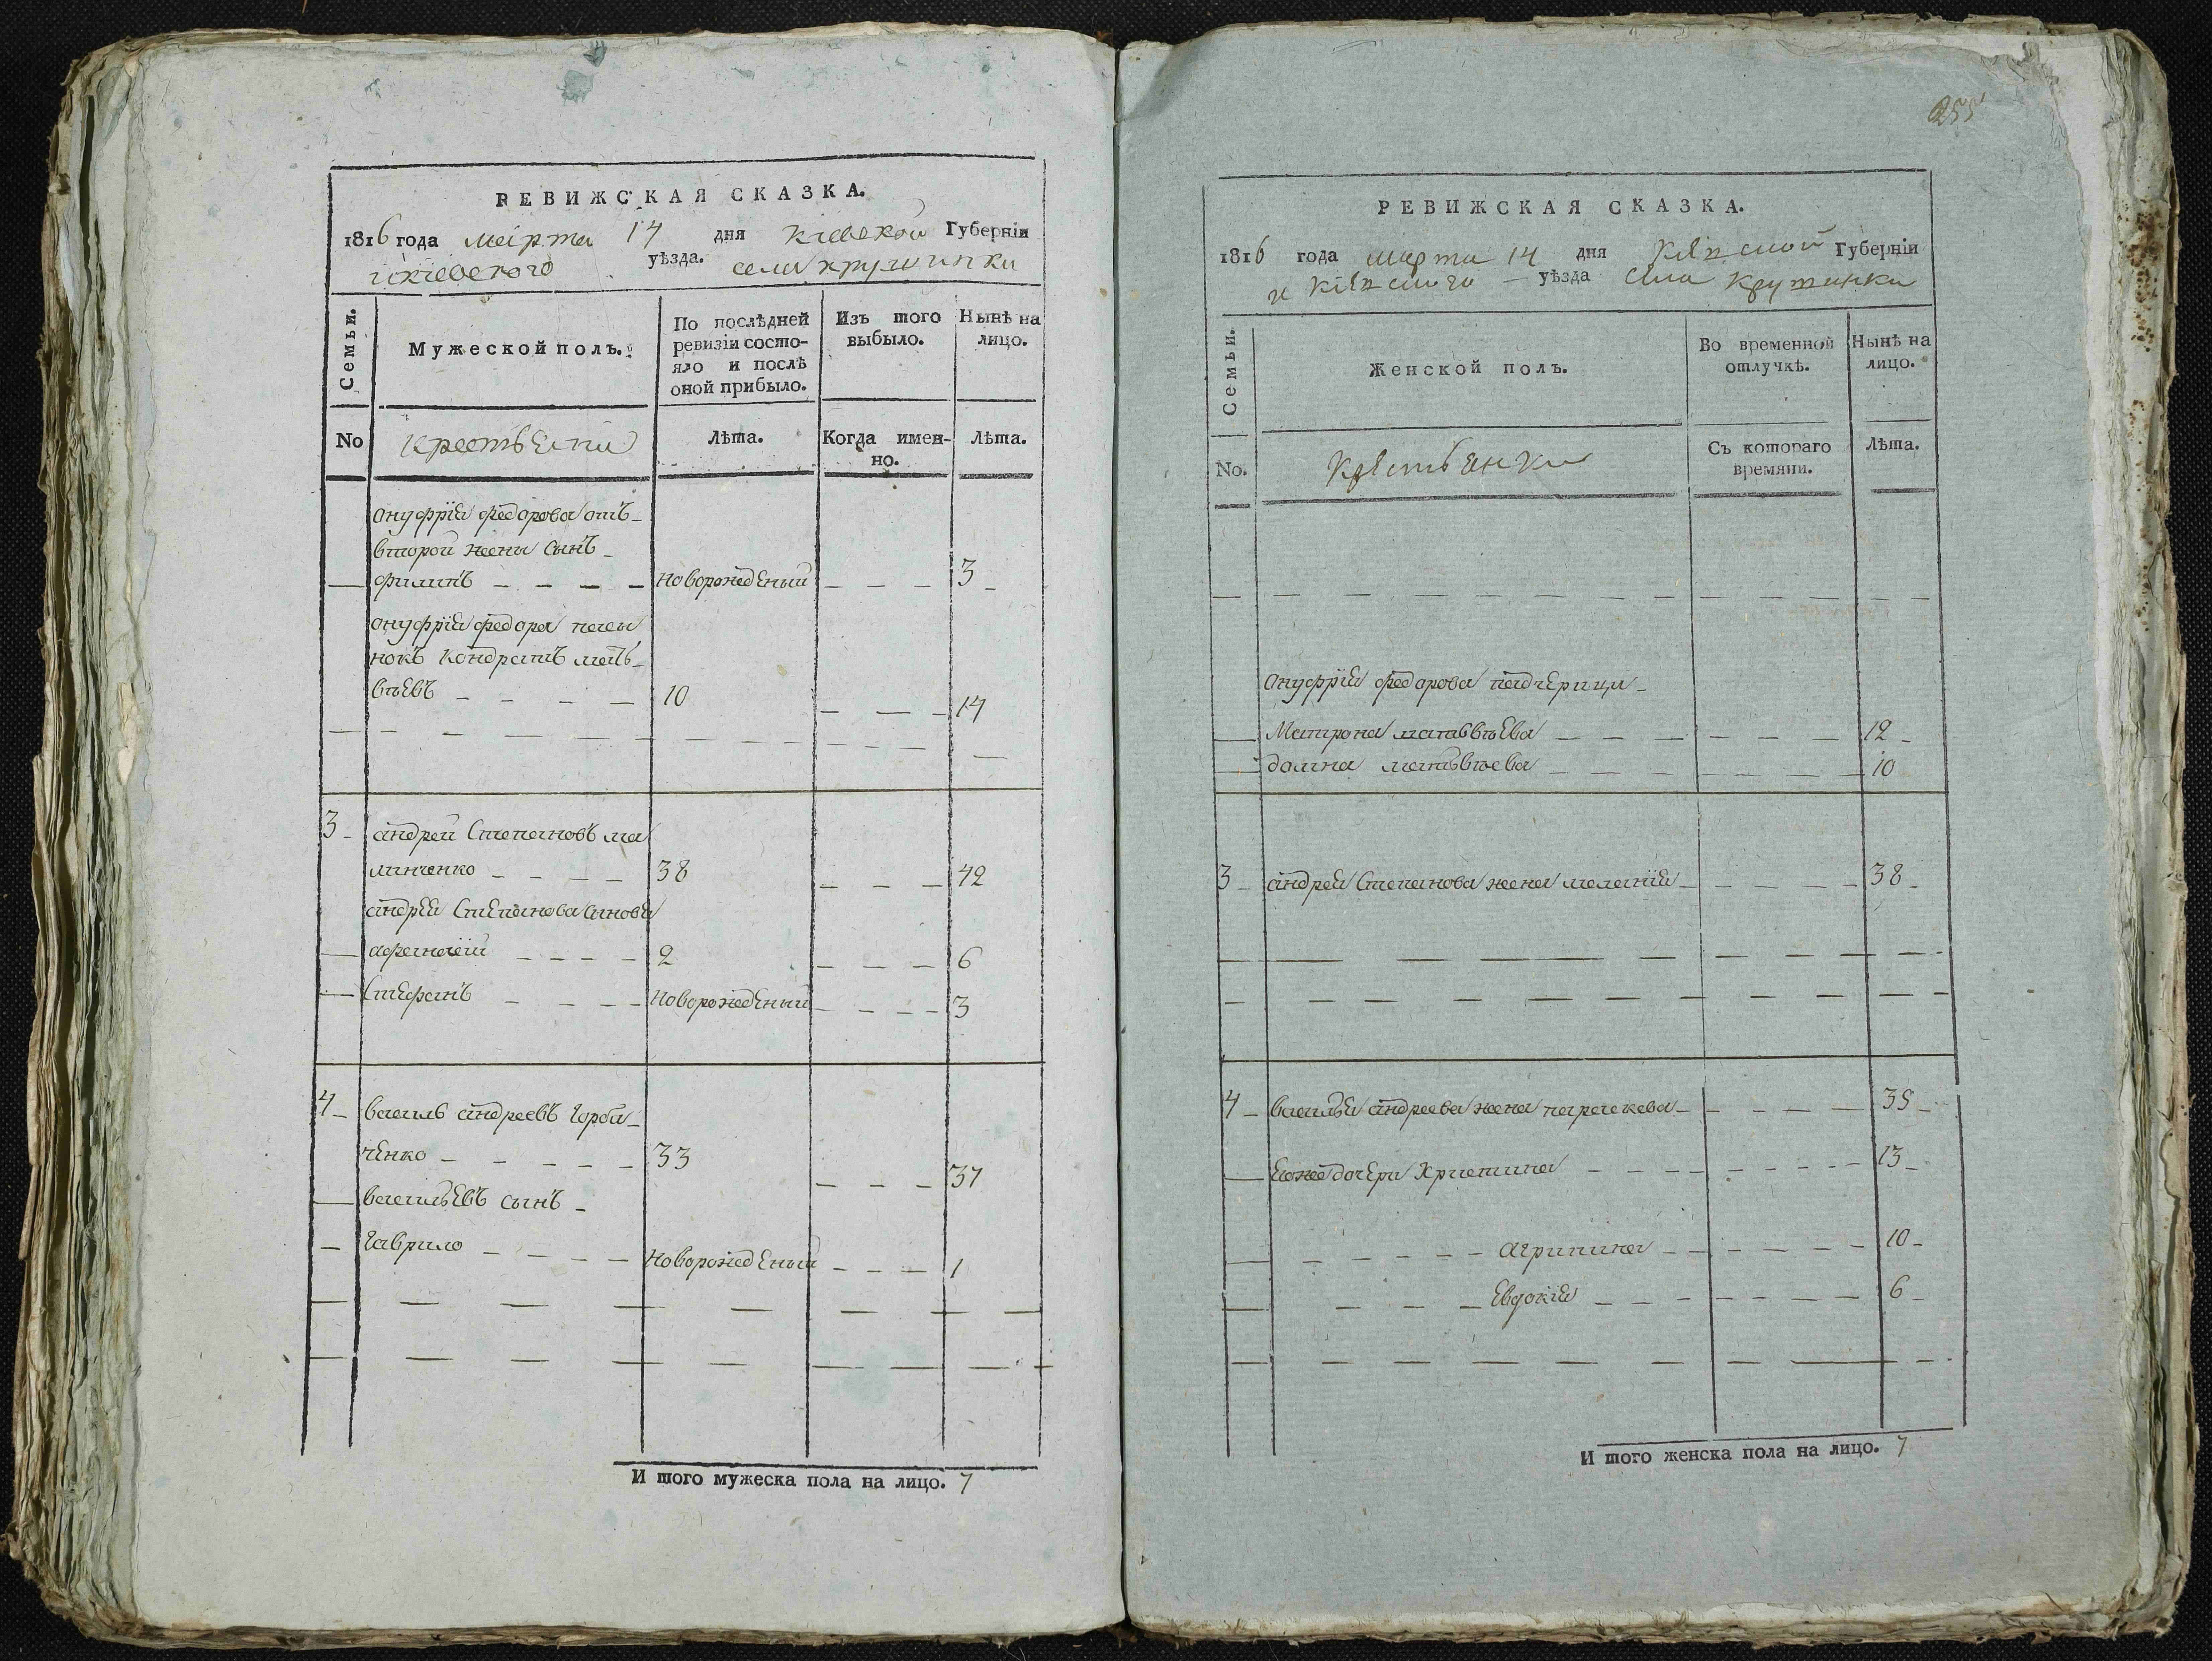 РЕВИЖСКАЯ СКАЗКА.
1816 года марта 14 дня Кіевской Губерніи
и кіевского уѣзда. села крушинки
Семьи.
Мужеской полъ.
По послѣдней ревизіи состояло и послѣ оной прибыло.
Изъ того выбыло.
Нынѣ на лицо.
No
Крестьяни
Лѣта.
Когда именно.
Лѣта.
онуфрія федорова отъ
второй жены сынъ
филипъ новорожденый 3
онуфрія федора пасы
нокъ кондратъ мать
вѣевъ 10 14
3 андрей степановъ ма
линченко 38 42
андрея степанова синовя
афанасій 2 6
стефанъ новорожденый 3
4 василь андреевъ горба
ченко 33 37
васильевъ сынъ
гаврило новорожденый 1
И того мужеска пола на лицо. 7
255
РЕВИЖСКАЯ СКАЗКА.
1816 года марта 14 дня Кіевской Губерніи
и Кіевского уѣзда села Крушинки
Семьи.
Женской полъ.
Во временной отлучкѣ.
Нынѣ на лицо.
No.
Крестьянки
Съ котораго времяни.
Лѣта.
онуфрія федорова падчерици
Матрона матьвѣева 12
домна матьвѣева 10
3 андрея степанова жена меланія 38
4 василья андреева жена параскева 35
еяже дочери Христина 13
агрипина 10
Евдокія 6
И того женска пола на лицо. 7